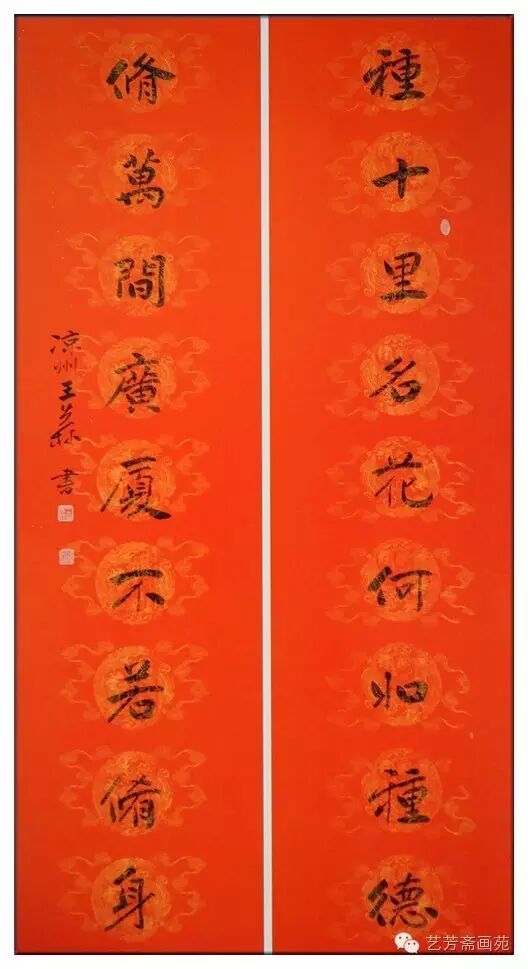 種十里名花何如種德
脩萬間廣厦不若脩身
凉州王㳟書
艺芳斋画苑